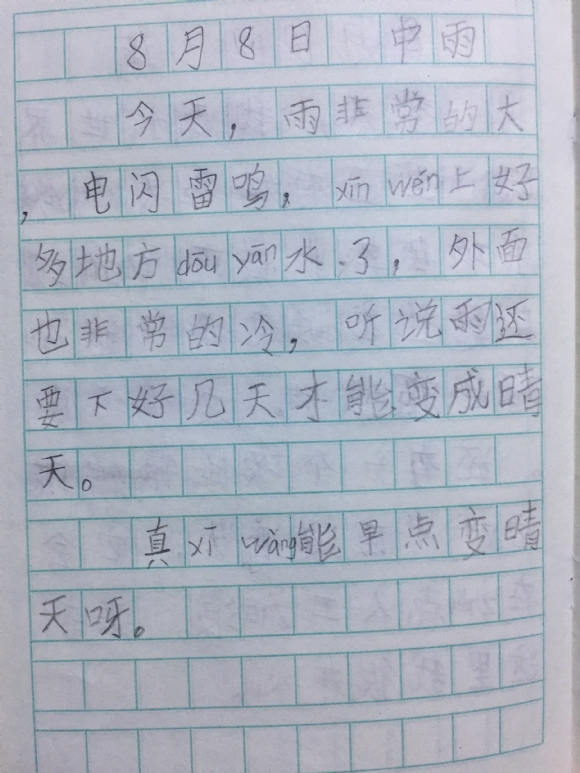 8月8日 中雨
今天，雨非常的大
，电闪雷鸣，xīn wén上好
多地方dōu yān水了，外面
也非常的冷，听说雨还
要下好几天才能变成晴
天。
真xī wàng能早点变晴
天呀。